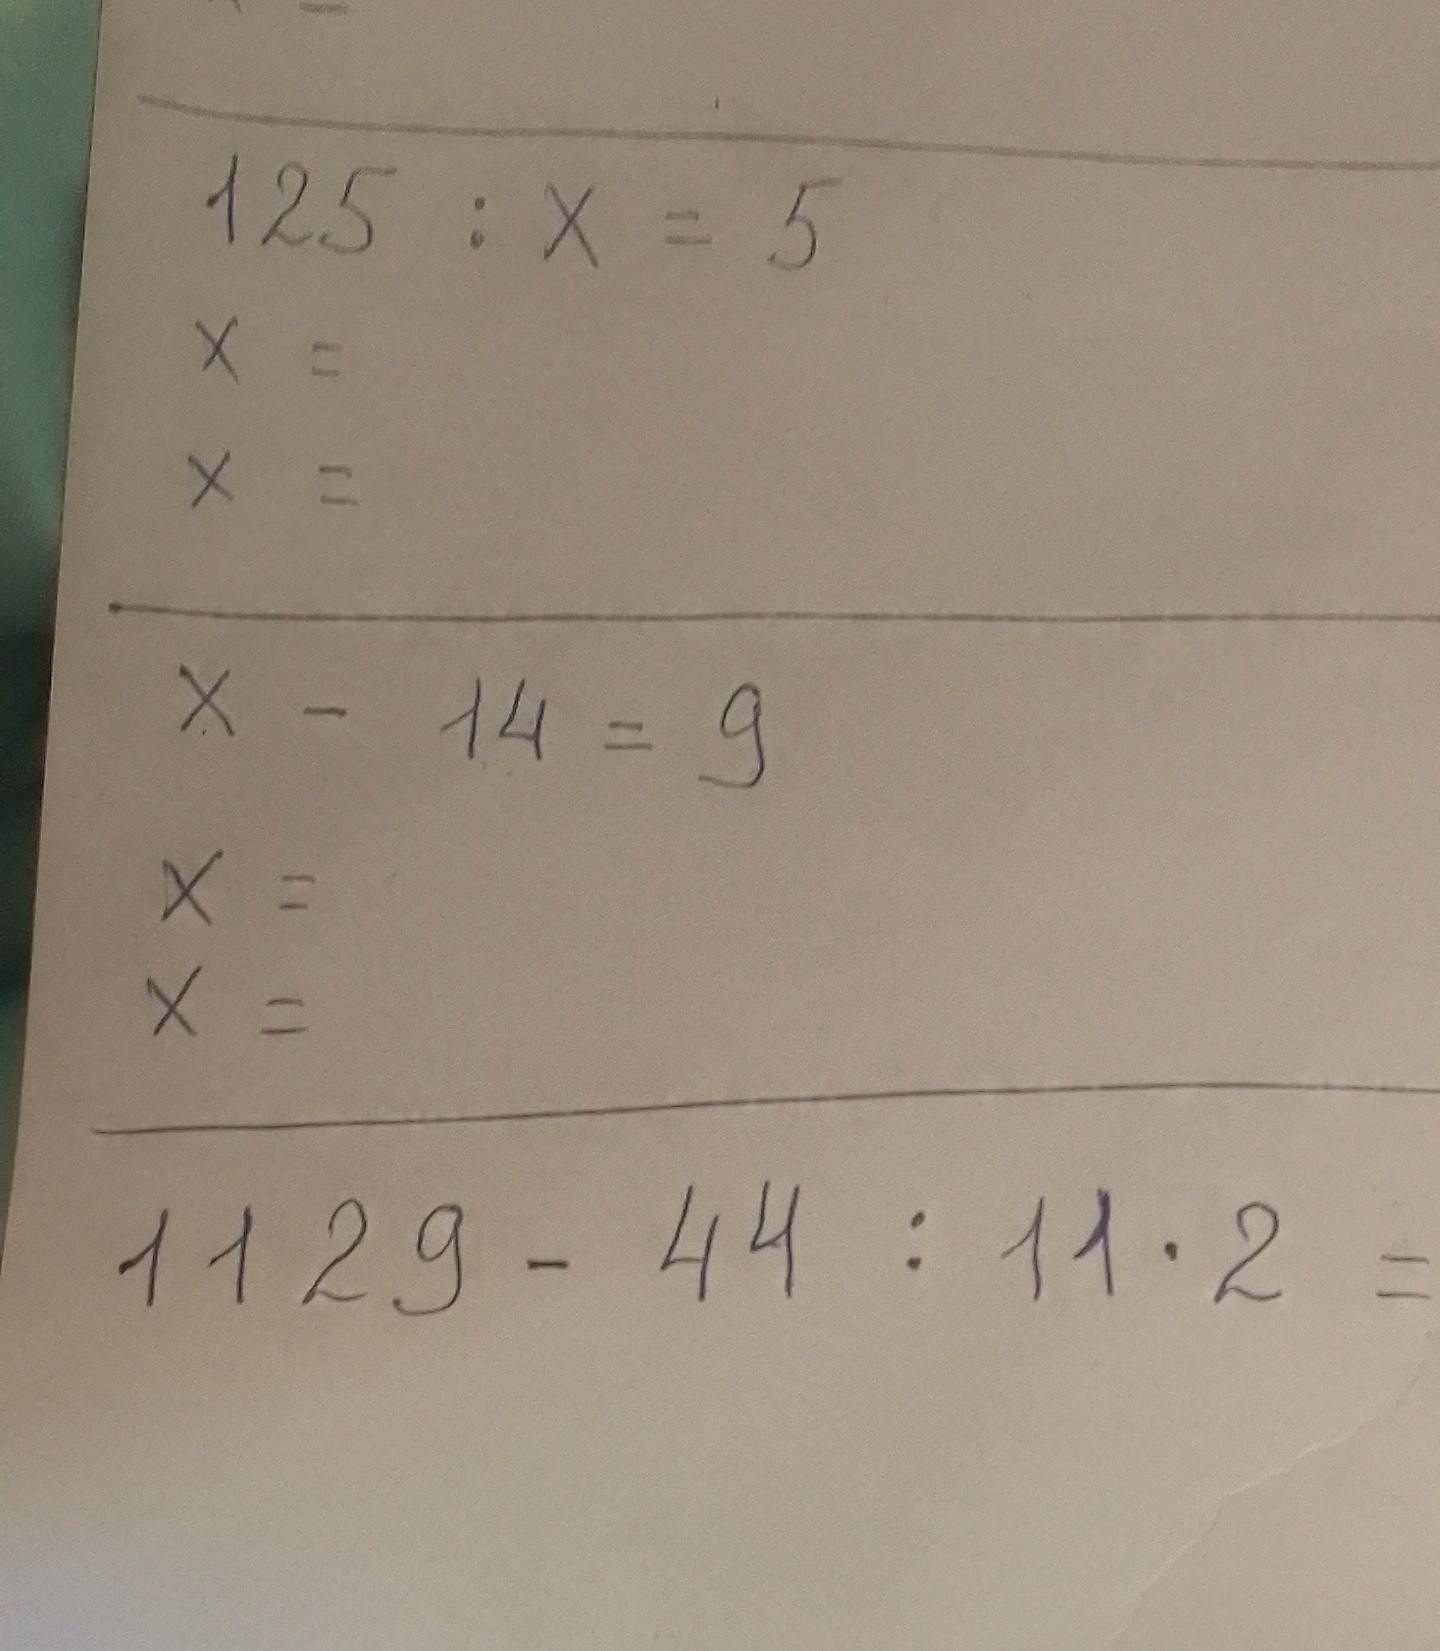 125 : x = 5
x =
x =
x - 14 = 9
x =
x =
1129 - 44 : 11 · 2 =